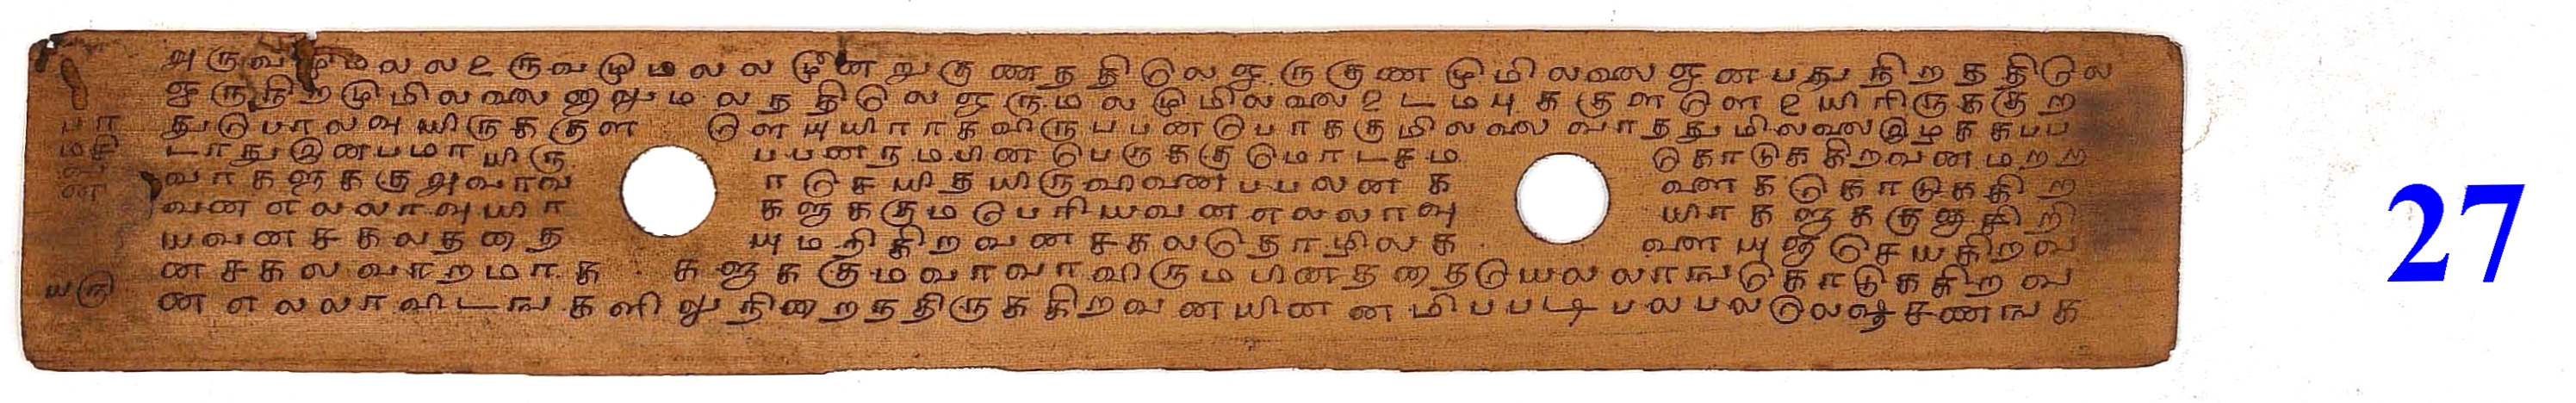 அருவமுமலலஉருவமுமலலமூனறுகுணததிலெஒருகுணமுமிலலைஐனபதுநிறததிலெ
ஒருநிறமுமிலலைஐஞுமலததிலெஒருமலமுமிலலைஉடமபுககுளளெஉயிரிருககுற
துபோலவுயிருககுள ளெயுயிராகவிருபபனபோககுமிலலைவரததுமிலலைஇழககபப
டாதுஇனபமாயிரு பபனநமமினபெருககுமோடசம கொடுககிறவனமறற
வரகளுககுஅவரவ ரசெயிதயிருவினைபபலனக ளைககொடுககிற
வனஎலலாவுயிர களுககுமபெரியவனஎலலாவு யிரகளுககுளுகிறி
யவனசகலததை யுமநிகிறவனசகலதொழிலக ளையுஞசெயகிறவ
னசகலவாறமாக களுககுமவரவரவிருமபினததையெலலாஙகொடுககிறவ
னஎலலாவிடஙகளிலுநிறைநதிருககிறவனயினனமிபபடிபலபலலெஷசணஙக
யரு
27